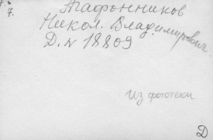 7.
Агафонников
Никол. Владимирович
Д. № 18809
Из фототеки
Д